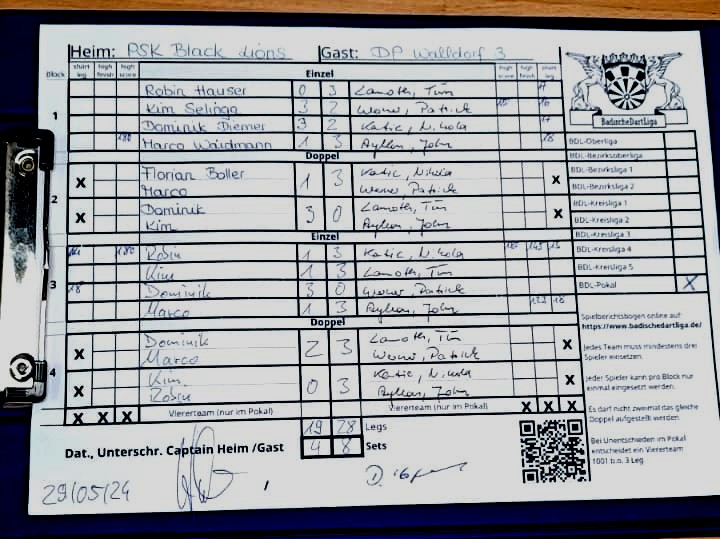 Heim: PSK Black Lions Gast: DP Walldorf 3
Block short leg high finish high score Einzel high score high finish short leg
1
Robin Hauser 0 3 Lamoth, Tim 17
Kim Selinga 3 2 Werner, Patrick 16
Dominik Diemer 3 2 Katic, Nikola 17
180 Marco Waidmann 1 3 Ayllon, John 18
Doppel
2
X Florian Boller 1 3 Katic, Nikola X
Marco Werner, Patrick
X Dominik 3 0 Lamoth, Tim X
Kim Ayllon, John
Einzel
3
180 Robin 1 3 Katic, Nikola 145
Kim 1 3 Lamoth, Tim
18 Dominik 3 0 Werner, Patrick
Marco 1 3 Ayllon, John 132 18
Doppel
4
X Dominik 2 3 Lamoth, Tim X
Marco Werner, Patrick
X Kim 0 3 Katic, Nikola X
Robin Ayllon, John
X X X Viererteam (nur im Pokal) Viererteam (nur im Pokal) X X X
19 28 Legs
4 8 Sets
Dat., Unterschr. Captain Heim /Gast
29/05/24 /
BadischeDartLiga
BDL-Oberliga
BDL-Bezirksoberliga
BDL-Bezirksliga 1
BDL-Bezirksliga 2
BDL-Kreisliga 1
BDL-Kreisliga 2
BDL-Kreisliga 3
BDL-Kreisliga 4
BDL-Kreisliga 5
BDL-Pokal X
Spielberichtsbogen online auf:
https://www.badischedartliga.de/
Jedes Team muss mindestens drei
Spieler einsetzen.
Jeder Spieler kann pro Block nur
einmal eingesetzt werden.
Es darf nicht zweimal das gleiche
Doppel aufgestellt werden.
Bei Unentschieden im Pokal
entscheidet ein Viererteam
1001 b.o. 3 Leg.